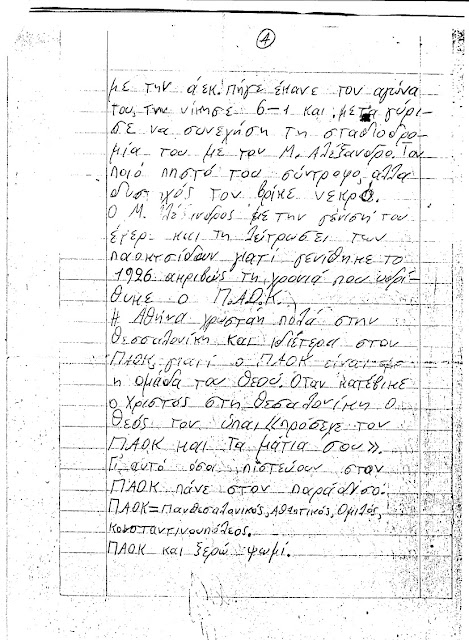 4
με την άεκ. πήγε έκανε τον αγώνα
του, την νίκησε 6-1 και μετα γύρι-
σε να συνεχήση τη σταδιοδρο-
μία του με τον Μ. Αλέξανδρο. Τον
ποιό πηστό του σύντροφο, αλλα
δυστιχός τον βρίκε νεκρό.
ο Μ. Αλέξανδρος με την γένισή του
έφερ και τη λύτρωσει των
παοκτσίδων γιατί γενίθηκε το
1926 ακριβώς τη χρονιά που ιδρί-
θυκε ο Π.Α.Ο.Κ.
Η Αθήνα χρωστάη πολά στην
Θεσσαλονίκη και ιδιέτερα στον
ΠΑΟΚ, γιατί ο ΠΑΟΚ είναι
η ομάδα του Θεού. Οταν κατέβικε
ο Χριστός στη Θεσαλονίκη ο
Θεός του είπαι «Πρόσεχε τον
ΠΑΟΚ και τα μάτια σου».
Γι αυτό όσοι πιστεύουν στον
ΠΑΟΚ πάνε στον παράδησο.
ΠΑΟΚ = Πανθεσαλονικός, Αθλητικός, Ομιλός,
Κονσταντινουπόλεος.
ΠΑΟΚ και ξερώ ψωμί.